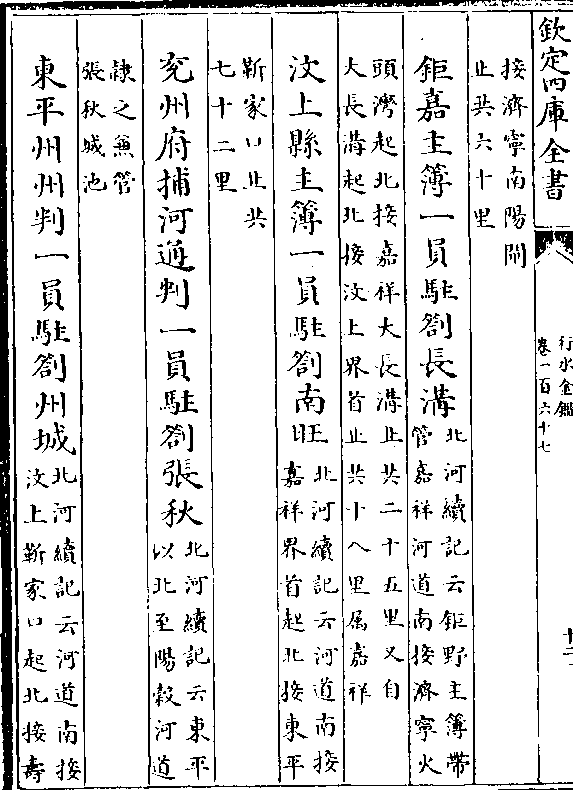 欽定四庫全書
行水金鑑
卷一百六十七
十二
接濟寧南陽閘
止共六十里
鉅嘉主簿一員駐劄長溝
北河續記云鉅野主簿帶
管嘉祥河道南接濟寧火
頭灣起北接嘉祥大長溝止共二十五里又自
大長溝起北接汶上界首止共十八里屬嘉祥
汶上縣主簿一員駐劄南旺
北河續記云河道南接
嘉祥界首起北接東平
靳家口止共
七十二里
兖州府捕河通判一員駐劄張秋
北河續記云東平
以北至陽穀河道
隷之兼管
張秋城池
東平州州判一員駐劄州城
北河續記云河道南接
汶上靳家口起北接壽